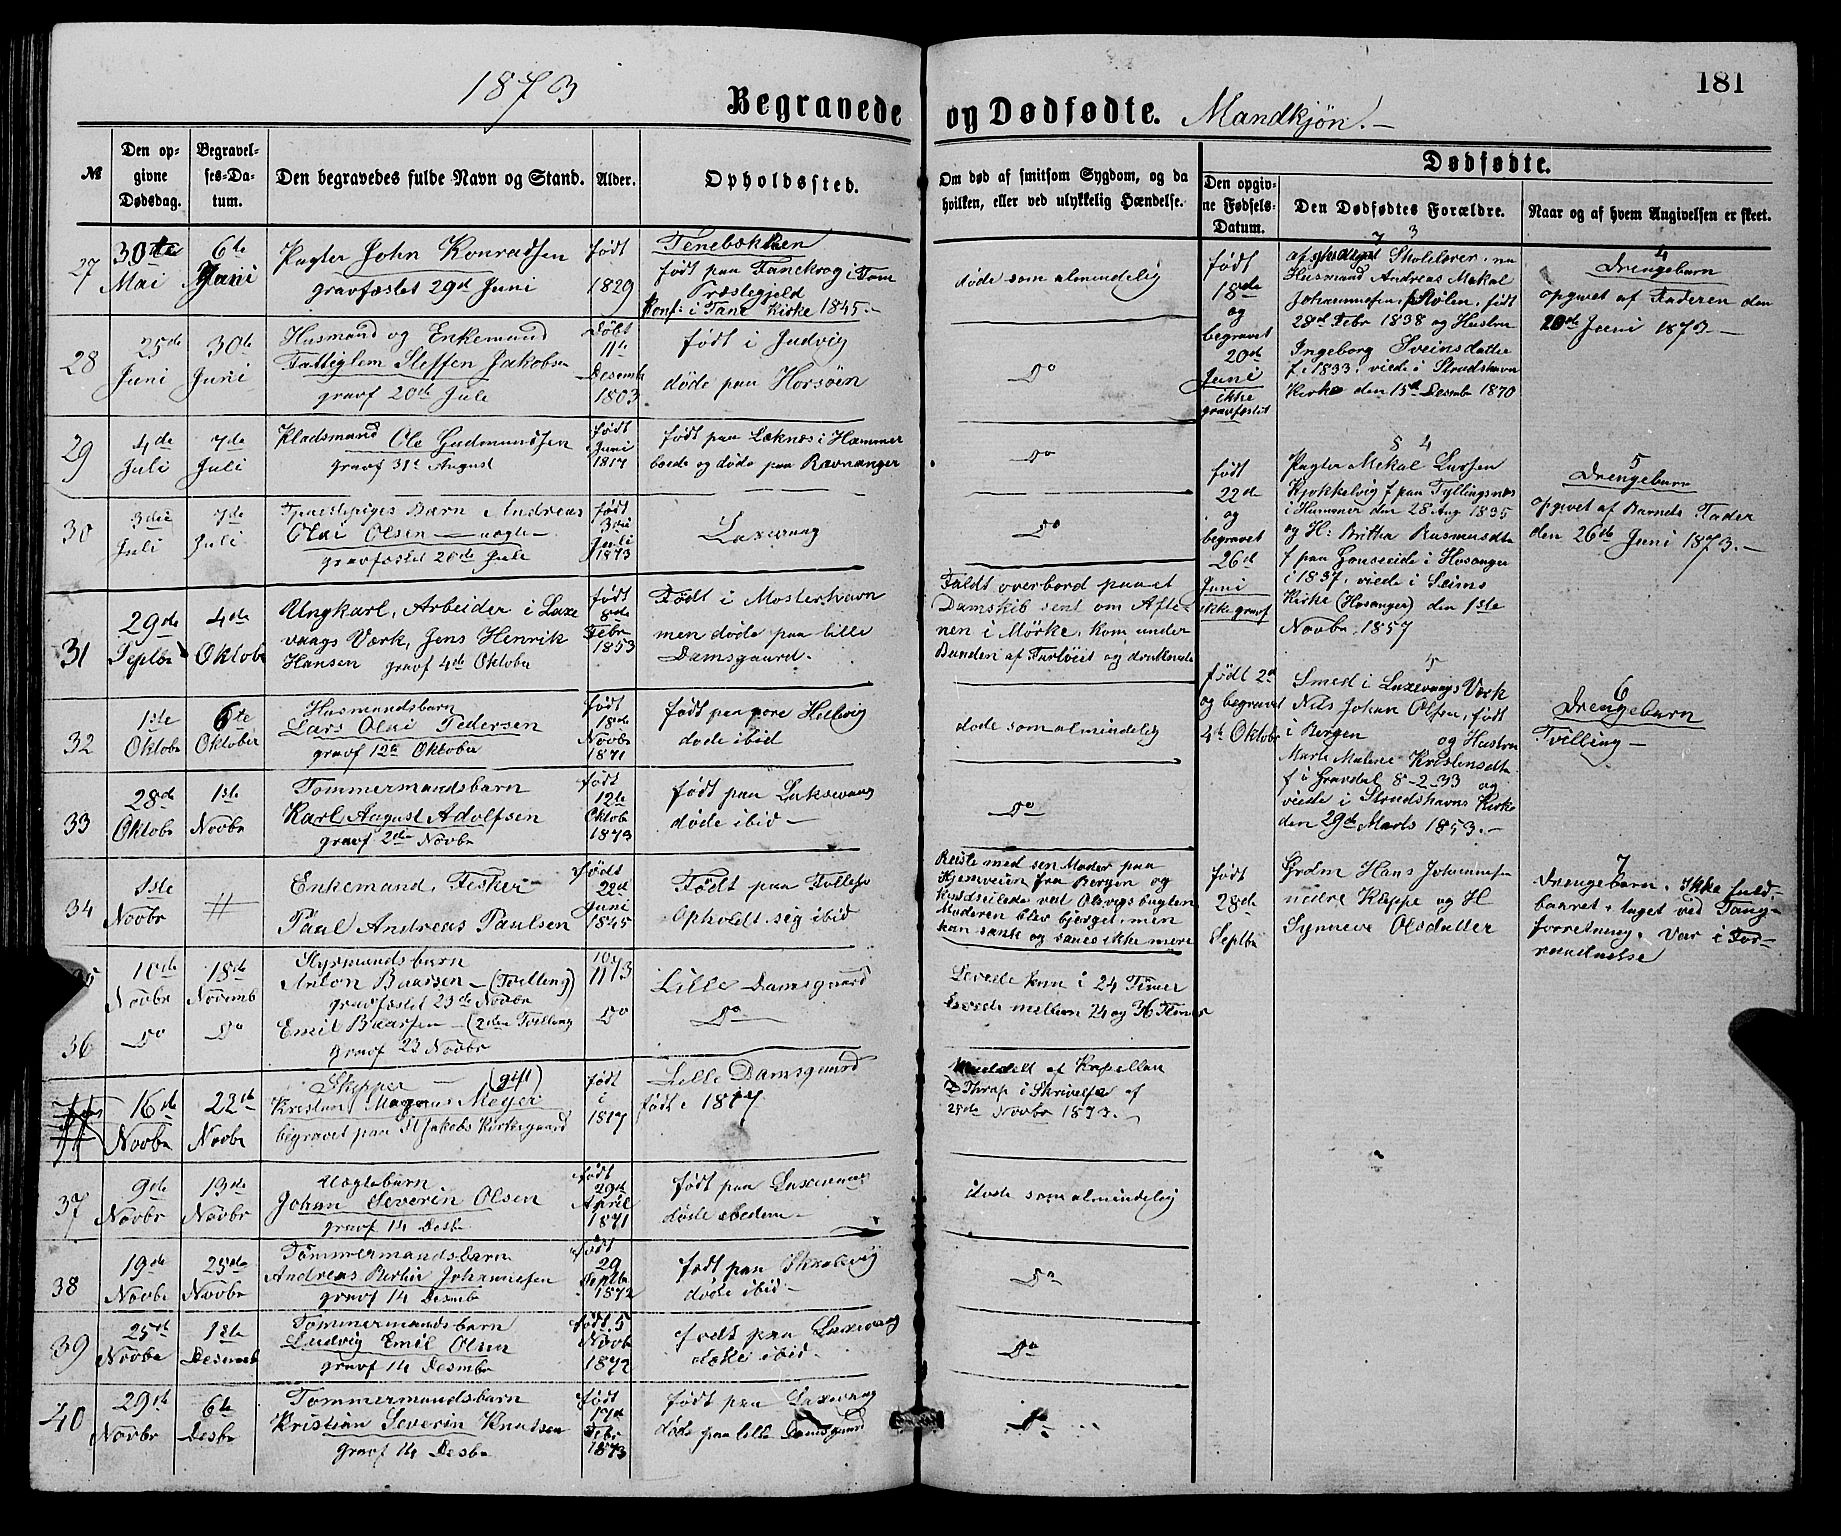 1873
181
Begravede og Dødfødte. Mandkjön.
№
Den opgivne Dødsdag.
Begravelses-Datum.
Den begravedes fulde Navn og Stand.
Alder.
Opholdssted.
Om død af smitsom Sygdom, og da hvilken, eller ved ulykkelig Hændelse.
Dødfødte.
Den opgivne Fødsels-Datum.
Den Dødfødtes Forældre.
Naar og af hvem Angivelsen er skeet.
27
30te
Mai
6te
Juni
Pagter John Konradsen
gravfæstet 29d Juni
født
1829
Tenebækken
født paa Tanekrog i Tom
Præstegjeld
Konf: i Tane Kirke 1845.
døde som almindelig
28
25de
Juni
30te
Juni
Husmand og Enkemand
Fattiglem Steffen Jakobsen
gravf 20de Juli
Døbt
11te
Desemb
1803
født i Indvig
døde paa Horsöen
Do
29
4de
Juli
7de
Juli
Kladsmand Ole Gudmundsen
gravf 31te August
født
Juni
1817
født paa Leknes i Hammer
boede og døde paa Ravnanger
Do
30
3die
Juli
7de
Juli
Tjenestepiges Barn Andreas
Olai Olsen — uægte —
gravfæstet 20de Juli
født
3die
Juli
1873
Laxevaag
Do
31
29de
Septbr
4de
Oktobr
Ungkarl, Arbeider i Laxe
vaags Værk, Jens Henrik
Hansen gravf 4de Oktobr
født
8de
Febr
1853
Født i Mosterhavn
men døde paa lille
Damsgaard.
Faldt overbord paa et
Damskib sent om Afte-
nen i Mörke, kom under
Bunden af Fartöiet og druknede
32
1ste
Oktobr
6te
Oktober
Husmandsbarn
Lars Olai Pedersen
gravf 12te Oktober
født
18de
Novbr
1871
født paa øvre Helldvig
døde ibid
døde som almindelig
33
28de
Oktobr
1ste
Novbr
Tømmermandsbarn
Karl August Adolfsen
gravf 2den Novbr
født
12te
Oktobr
1873
født paa Laksevaag
døde ibid —
Do
34
1ste
Novbr
Enkemand, Fisker
Paul Andreas Paulsen
født
22d
Juni
1845
Født paa
Opholdt sig ibid
Reiste med sin Moder paa
Hjemveien fra Bergen og
Kuldseilede ved Olsvigsbugten
Moderen blev bjerget, men
han sank og sanes ikke mere
10de
Novbr
18de
Novemb
Styrmandsbarn
Anton Baarsen — (Tvilling)
gravfæstet 23de Novbr
10/11 73
Lille Damsgaard
Levede kun i 24 Timer
36
Do
Do
Emil Baarsen — (2den Tvilling
gravf 23 Novbr
Do
Do
Levede mellem 24 og 36 Timer
16de
Novbr
22de
Novbr
Skipper — (gift)
Kristian Magnus Meyer
begravet paa St Jakobs Kirkegaard
født
i
1817
Lille Damsgaard
født i 1817
Meddelt af Kapellan
Thrap i Skrivelse af
28de Novbr 1873.
37
9de
Novbr
13de
Novbr
Uægtebarn
Johan Severin Olsen
gravf 14 Desbr
født
29de
April
1871
født paa Laxevaag
døde
døde som almindelig
38
19de
Novbr
25de
Novbr
Tømmermandsbarn
Andreas Bertin Johannesen
gravf 14 Desmbr
født
29
Septbr
1872
født paa Skaalevig
døde ibid —
Do
39
25de
Novbr
1ste
Desmbr
Tømmermandsbarn
Ludvig Emil Olsen
gravf 14 Desmbr
født 5
Novb
1872
født paa Laxevaag
døde ibid —
Do
40
29de
Novbr
6te
Desbr
Tømmermandsbarn
Kristian Severin Knutsen
gravf 14 Desbr
født
17de
Febr
1873
født paa Laxevaag
døde paa lille Damsgaard
Do
født
18de
og
begravet
20de
Juni
ikke
gravfæstet
3
af Skolelærer, nu
Husmand Andreas Mekal
Johannesen, født
28de Febr 1838 og Hustru
Ingeborg Sveinsdatter
f. i 1833, viede i Strudshavn
Kirke den 15de Desmbr 1870
4
Drengebarn
opgivet af Faderen den
20de Juni 1873.
født
22de
og
begravet
26de
Juni
ikke gravf
4
Pagter Mekal Larsen
Kjøkkelvig f paa Tyllingsnes
i Hammer den 28 Aug 1835
og H: Britha Rasmusdtr
f paa Gonseide i Hosanger
i 1837, viede i Seims
Kirke (Hosanger) den 1ste
Novbr 1857
5
Drengebarn
opgivet af Barnets Fader
den 26de Juni 1873.
født 2d
og begravet
4de Oktobr
5
Smed i Laxevaags Værk
Nils Johan Olsen, født
i Bergen og Hustru
Marte Malene Kristensdtr
f i Gravdal 8-2-33 og
viede i Strudshavns Kirke
den 29de Marts 1853.
6
Drengebarn
Tvilling —
født
28de
Septbr
Grdm Hans Johannesen
nedre Kleppe og H
Synneve Olsdatter
7
Drengebarn. Ikke fuld-
baaret, taget ved Tang-
forretning. Var i For-
raadnelse